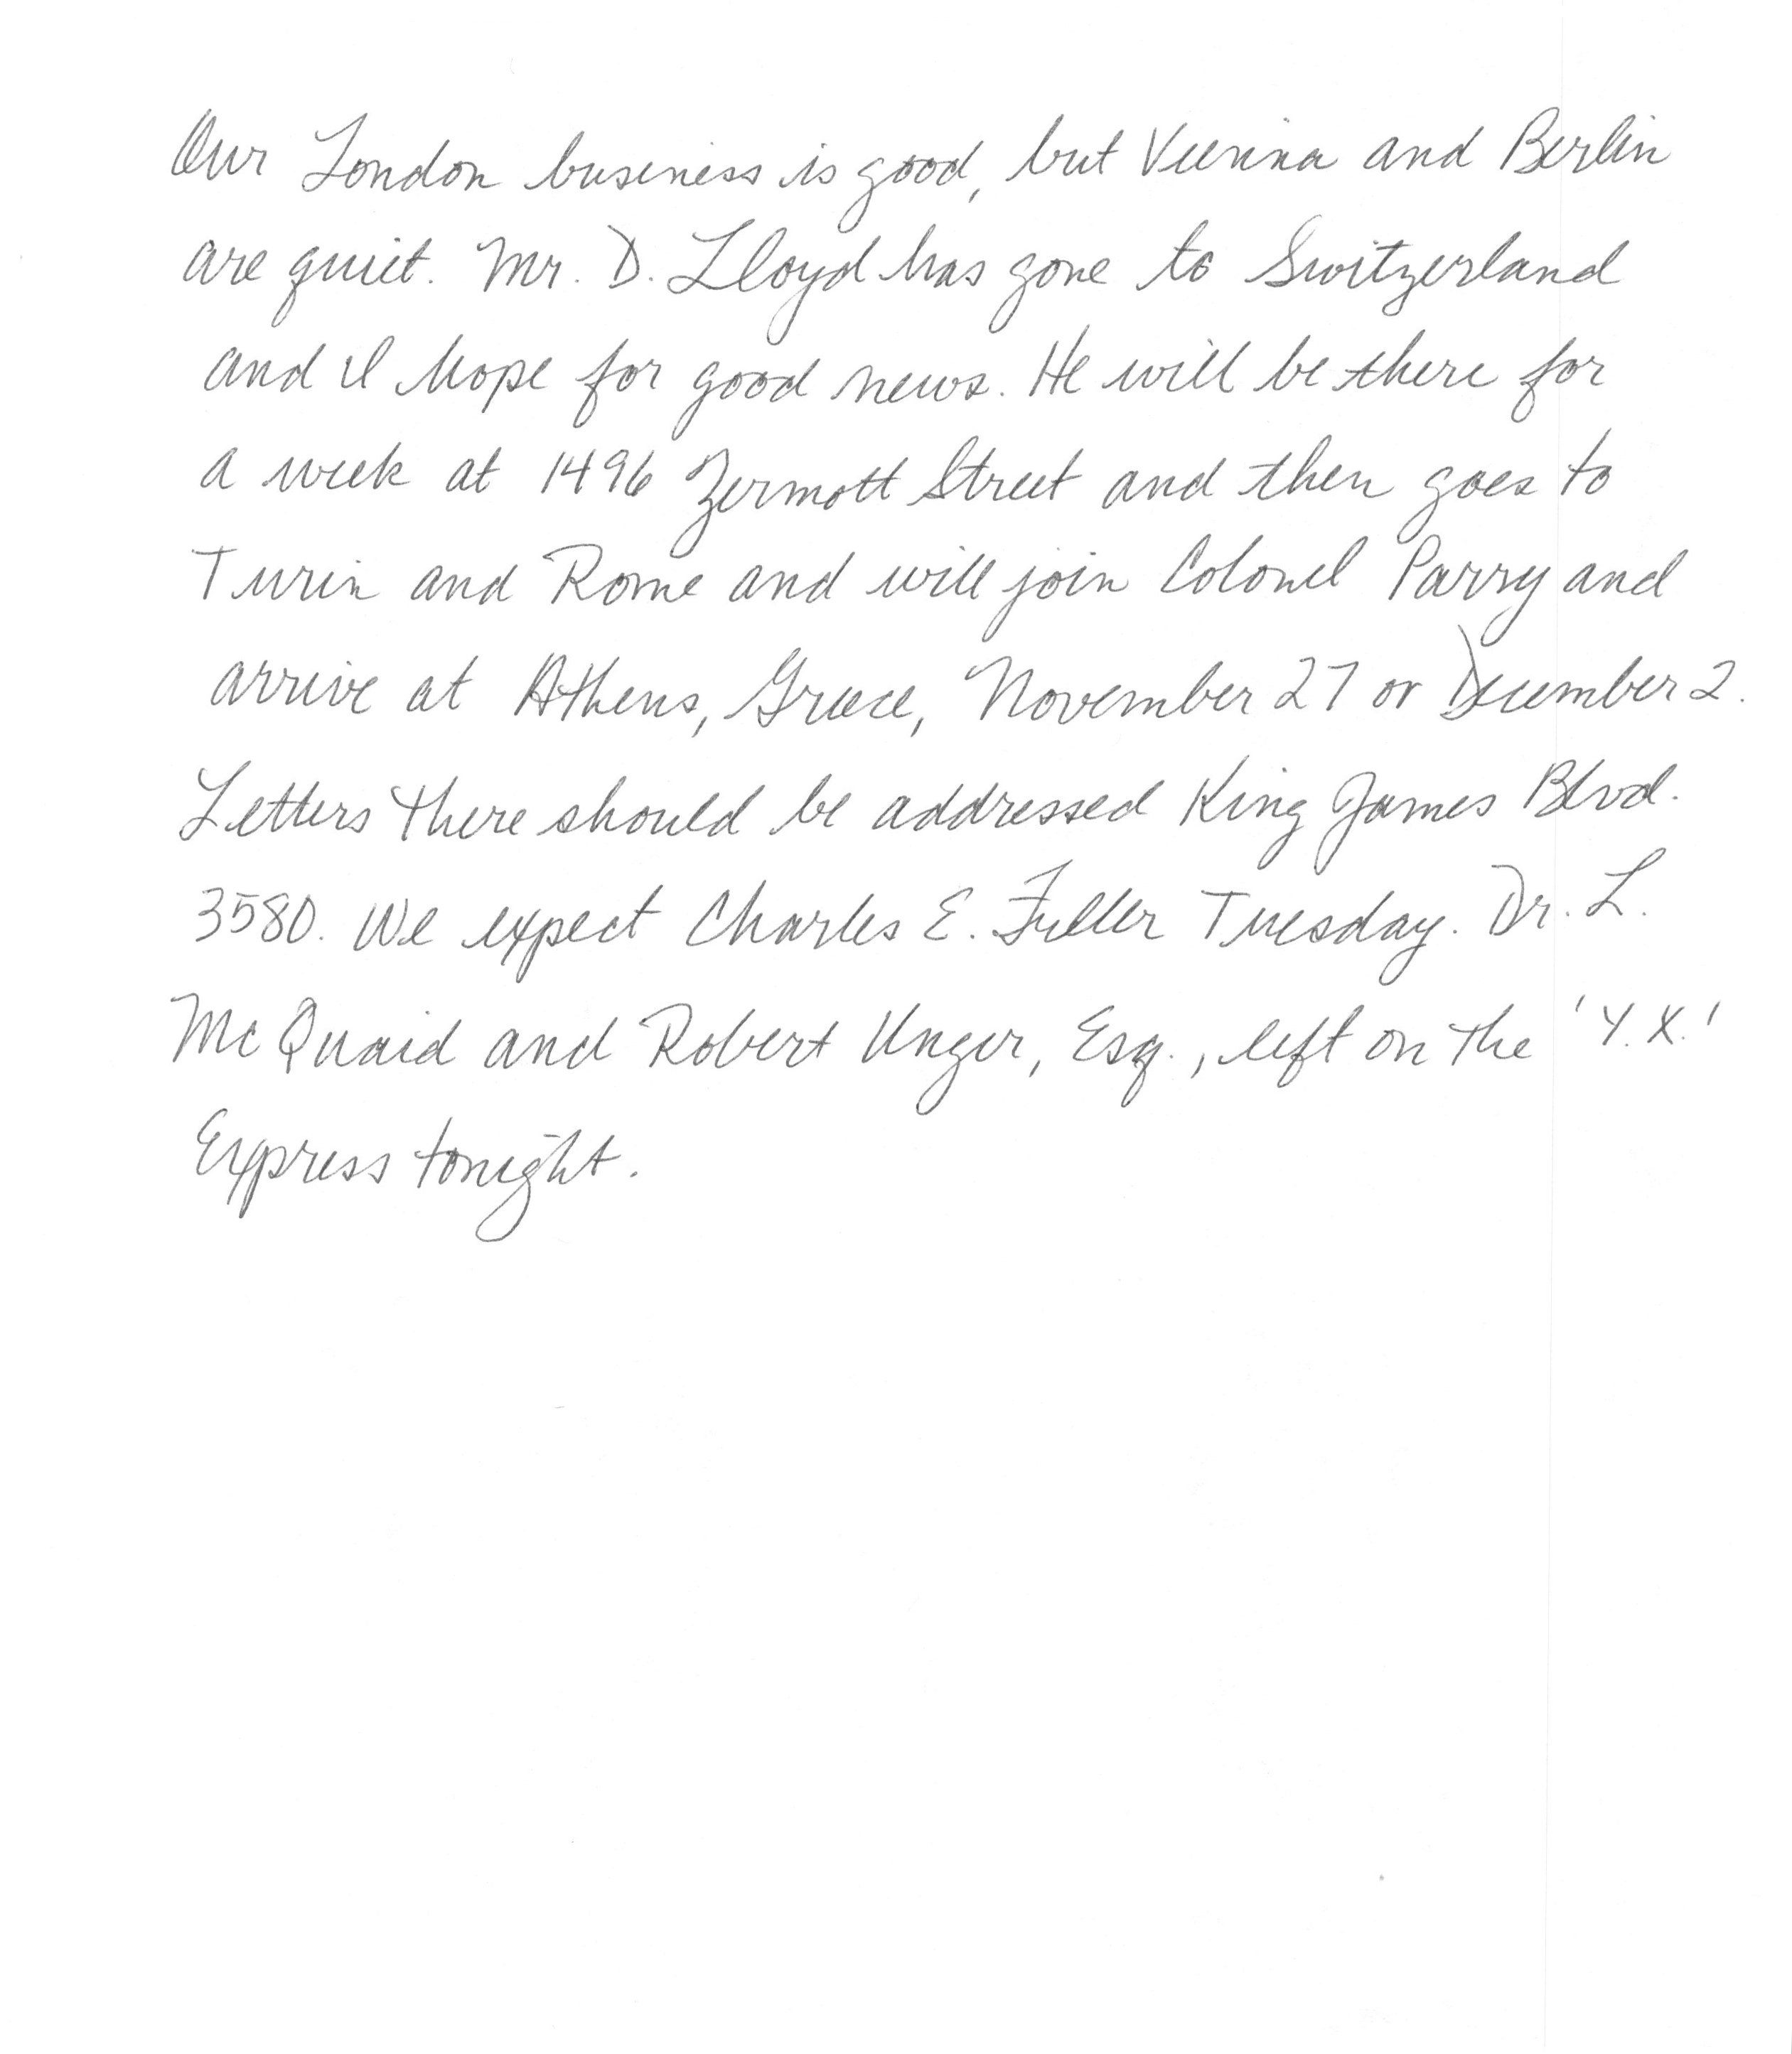 Our London business is good, but Vienna and Berlin
are quiet. Mr. D. Lloyd has gone to Switzerland
and I hope for good news. He will be there for
a week at 1496 Zermott Street and then goes to
Turin and Rome and will join Colonel Parry and
arrive at Athens, Greece, November 27 or December 2.
Letters there should be addressed King James Blvd.
3580. We expect Charles E. Fuller Tuesday. Dr. L.
McQuaid and Robert Unger, Esq., left on the 'Y.X.'
Express tonight.